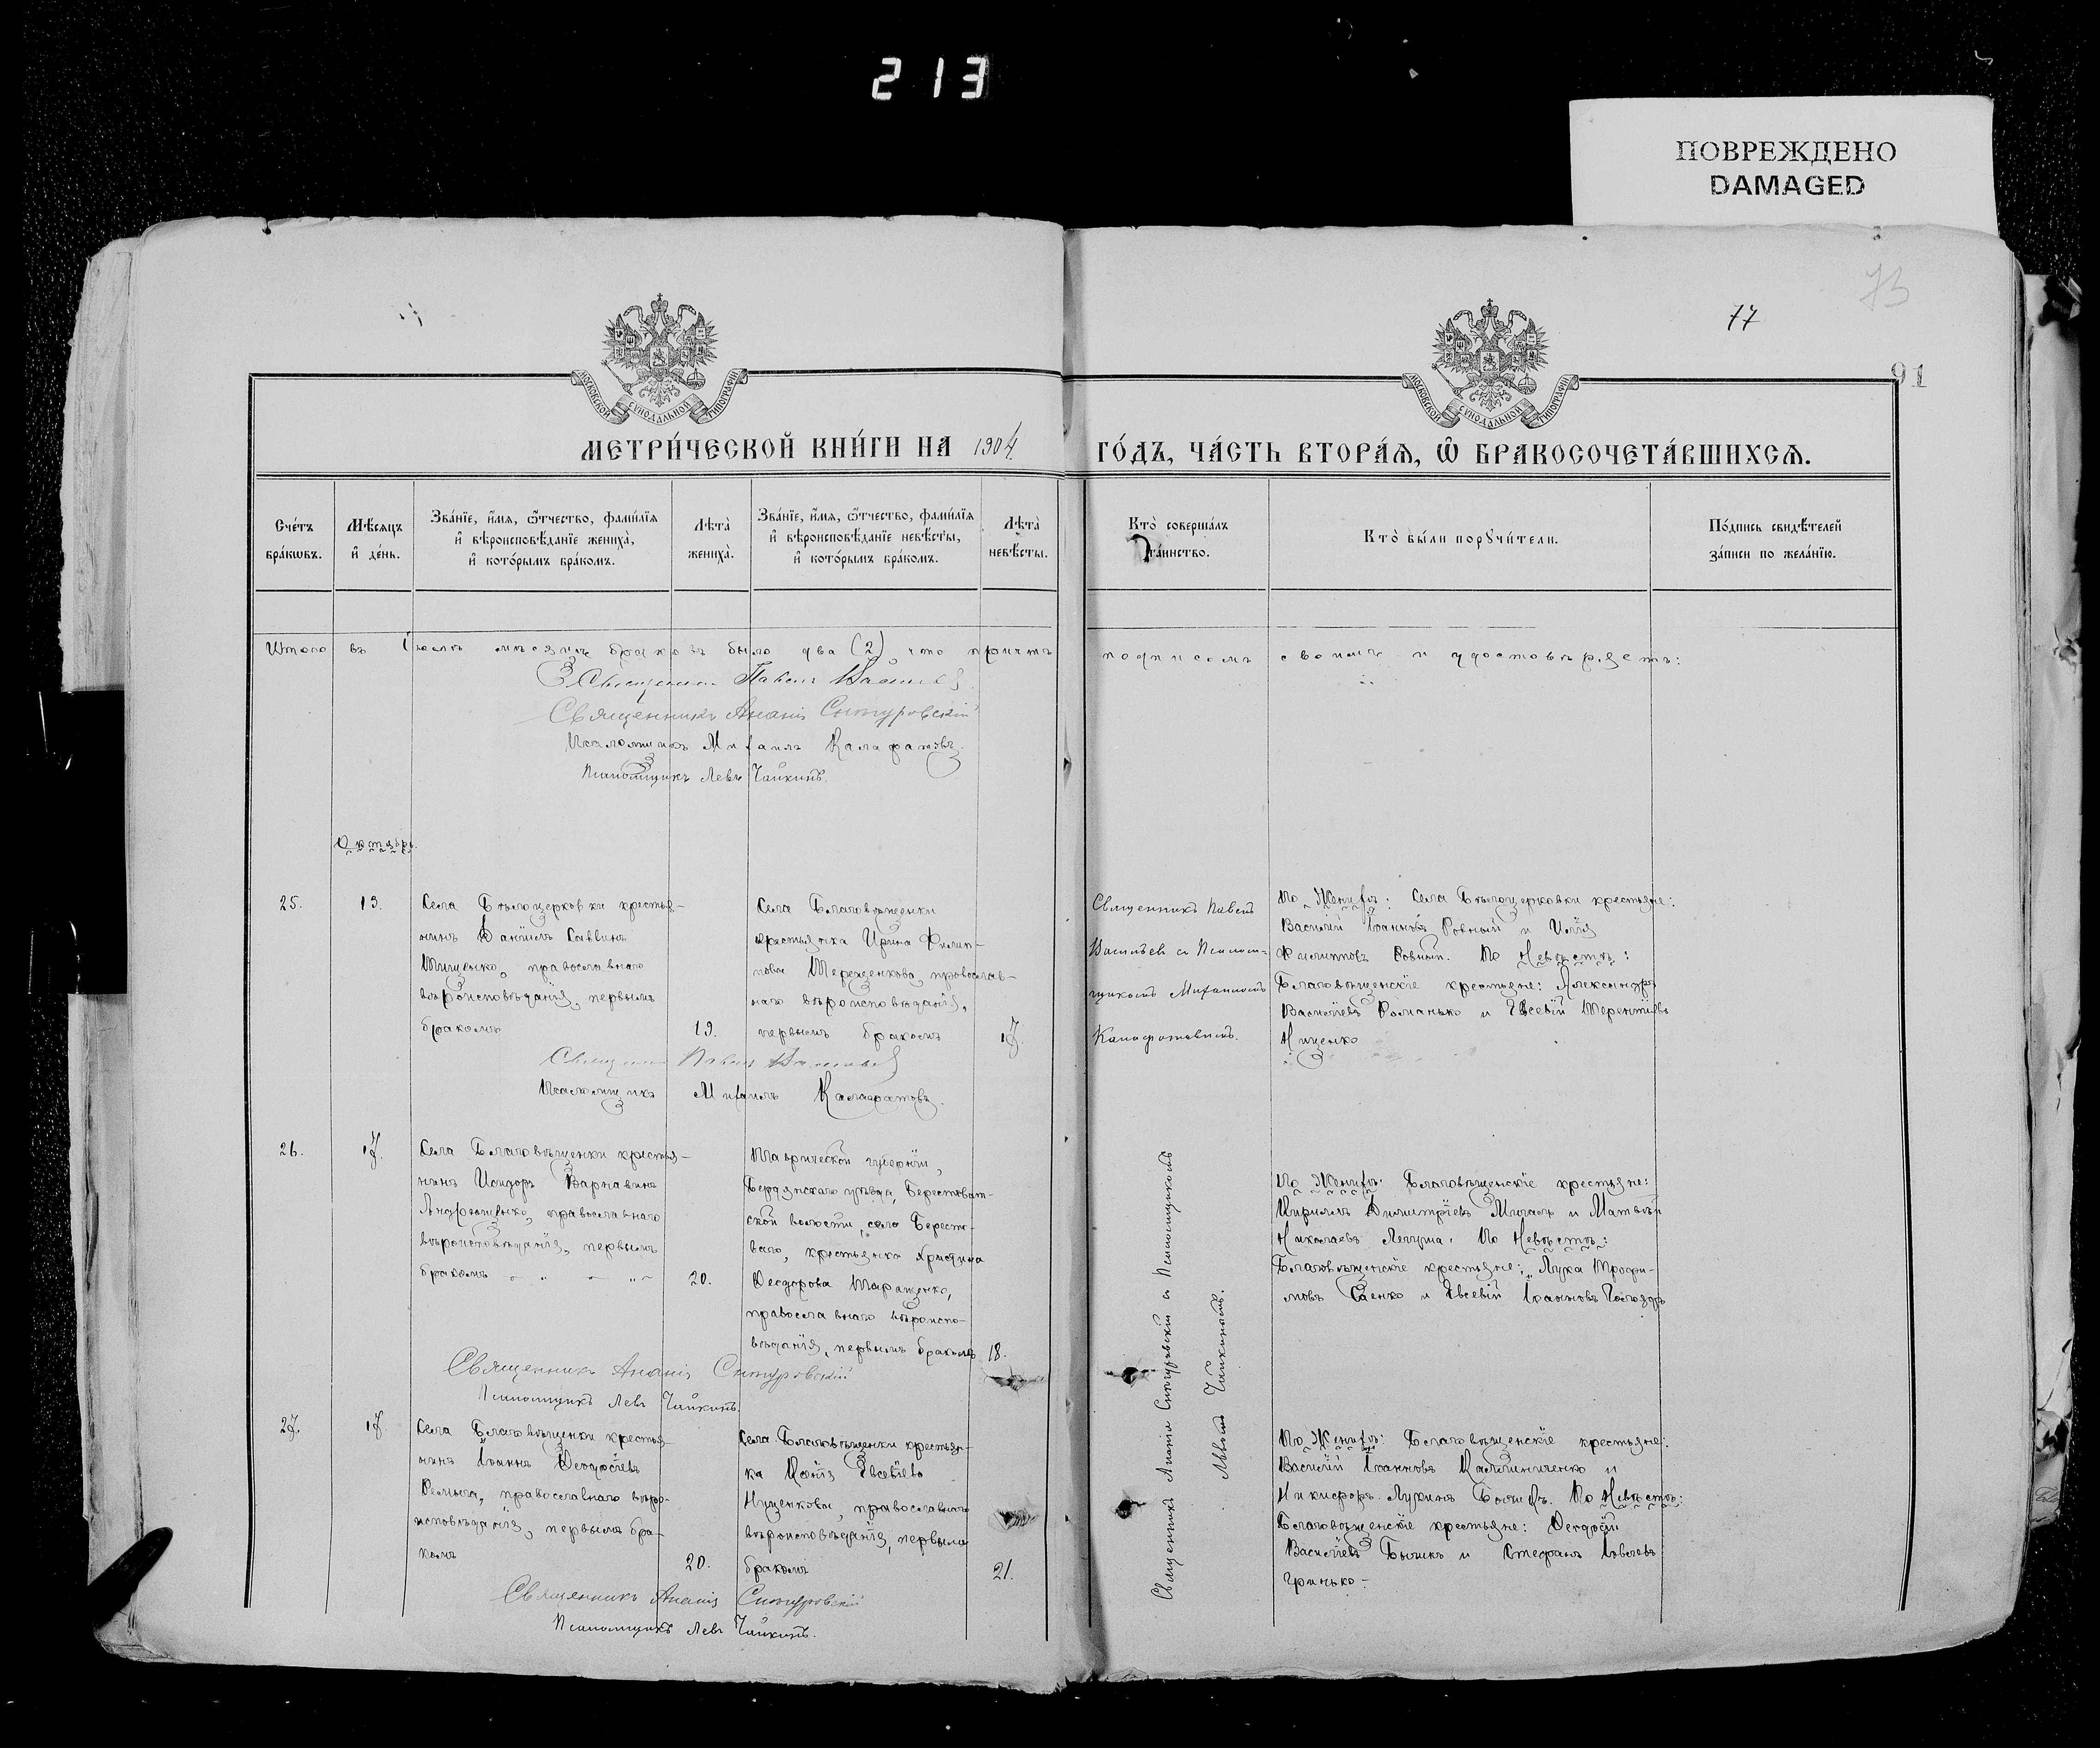 213
ПОВРЕЖДЕНО
DAMAGED
73
77
91
МОСКОВСКОЙ СѴНОДАЛЬНОЙ ТИПОГРАФІИ
МОСКОВСКОЙ СѴНОДАЛЬНОЙ ТИПОГРАФІИ
МЕТРИ́ЧЕСКОЙ КНИ́ГИ НА 1904 ГО́ДЪ, ЧА́СТЬ ВТОРА́Ѧ, Ѽ БРАКОСОЧЕТА́ВШИХСѦ.
Сче́тъ бра́кѡвъ.
Мѣ́сѧцъ и҆ де́нь.
Зва́нїе, и҆́мѧ, ѻ҆́тчество, фами́лїѧ и҆ вѣроисповѣ́данїе жениха̀, и҆ кото́рымъ бра́комъ.
Лѣ́та̀ жениха̀.
Зва́нїе, и҆́мѧ, ѻ҆́тчество, фами́лїѧ и҆ вѣроисповѣ́данїе невѣ́сты, и҆ кото́рымъ бра́комъ.
Лѣ́та̀ невѣ́сты.
Кто̀ соверша́лъ та́инство.
Кто̀ бы́ли порꙋчи́тели.
По́дпись свидѣ́телей за́писи по жела́нїю.
Итого въ мѣсяцѣ браковъ было два (2) что причтъ подписомъ своимъ и удостовѣряетъ:
Священникъ Павелъ Васильев
Священникъ Ананія Снѣгуровскій
Псаломщикъ Михаилъ Калафатовъ
Псаломщикъ Левъ Чайкинъ.
Октябрь.
25.
13.
Села Бѣлоцерковки крестья-
нинъ Даніилъ Саввинъ
Тищенко, православнаго
вѣроисповѣданія, первымъ
бракомъ
19.
Села Благовѣщенки
крестьянка Ирина Филип-
пова Терещенкова, православ-
наго вѣроисповѣданія,
первымъ бракомъ
17.
Священникъ Павелъ
Васильев и Псалом-
щикомъ Михаиломъ
Калафатовымъ.
По Женихѣ: Села Бѣлоцерковки крестьяне:
Василій Іоанновъ Ровный и Илія
Филипповъ Ровный. По Невѣстѣ:
Благовѣщенскіе крестьяне: Александръ
Василіевъ Романько и Евсевій Терентіевъ
Ниценко
Священникъ Павелъ Васильев
Псаломщикъ Михаилъ Калафатовъ.
26.
17.
Села Благовѣщенки крестья-
нинъ Исидоръ Варнавинъ
Андрющенко, православнаго
вѣроисповѣданія, первымъ
бракомъ
20.
Таврической губерніи,
Бердянскаго уѣзда, Берестоват-
ской волости, села Бересто-
ваго, крестьянка Христина
Ѳеодорова Таращенко,
православнаго вѣроиспо-
вѣданія, первымъ бракомъ
18.
По Женихѣ: Благовѣщенскіе крестьяне:
Кириллъ Димитріевъ и Матвѣй
Николаевъ Лепуша. По Невѣстѣ:
Благовѣщенскіе крестьяне: Лука Трофи-
мовъ Саенко и Евсевій Іоанновъ
Священникъ Ананія Снѣгуровскій
Псаломщикъ Левъ Чайкинъ.
Священникъ Ананія Снѣгуровскій и Псаломщикомъ
Львомъ Чайкинымъ.
27.
17
Села Благовѣщенки крестья-
нинъ Іоаннъ Ѳеодосіевъ
православнаго вѣро-
исповѣданія, первымъ бра-
комъ
20.
Села Благовѣщенки крестьян-
ка Ксенія Евсевіева
Ниценкова, православнаго
вѣроисповѣданія, первымъ
бракомъ
21.
По Женихѣ: Благовѣщенскіе крестьяне:
Василій Іоанновъ Калиниченко и
Никифоръ Лукинъ По Невѣстѣ:
Благовѣщенскіе крестьяне: Ѳеодосій
Василіевъ Бычикъ и Стефанъ Іовлевъ
Гринько.
Священникъ Ананія Снѣгуровскій
Псаломщикъ Левъ Чайкинъ.